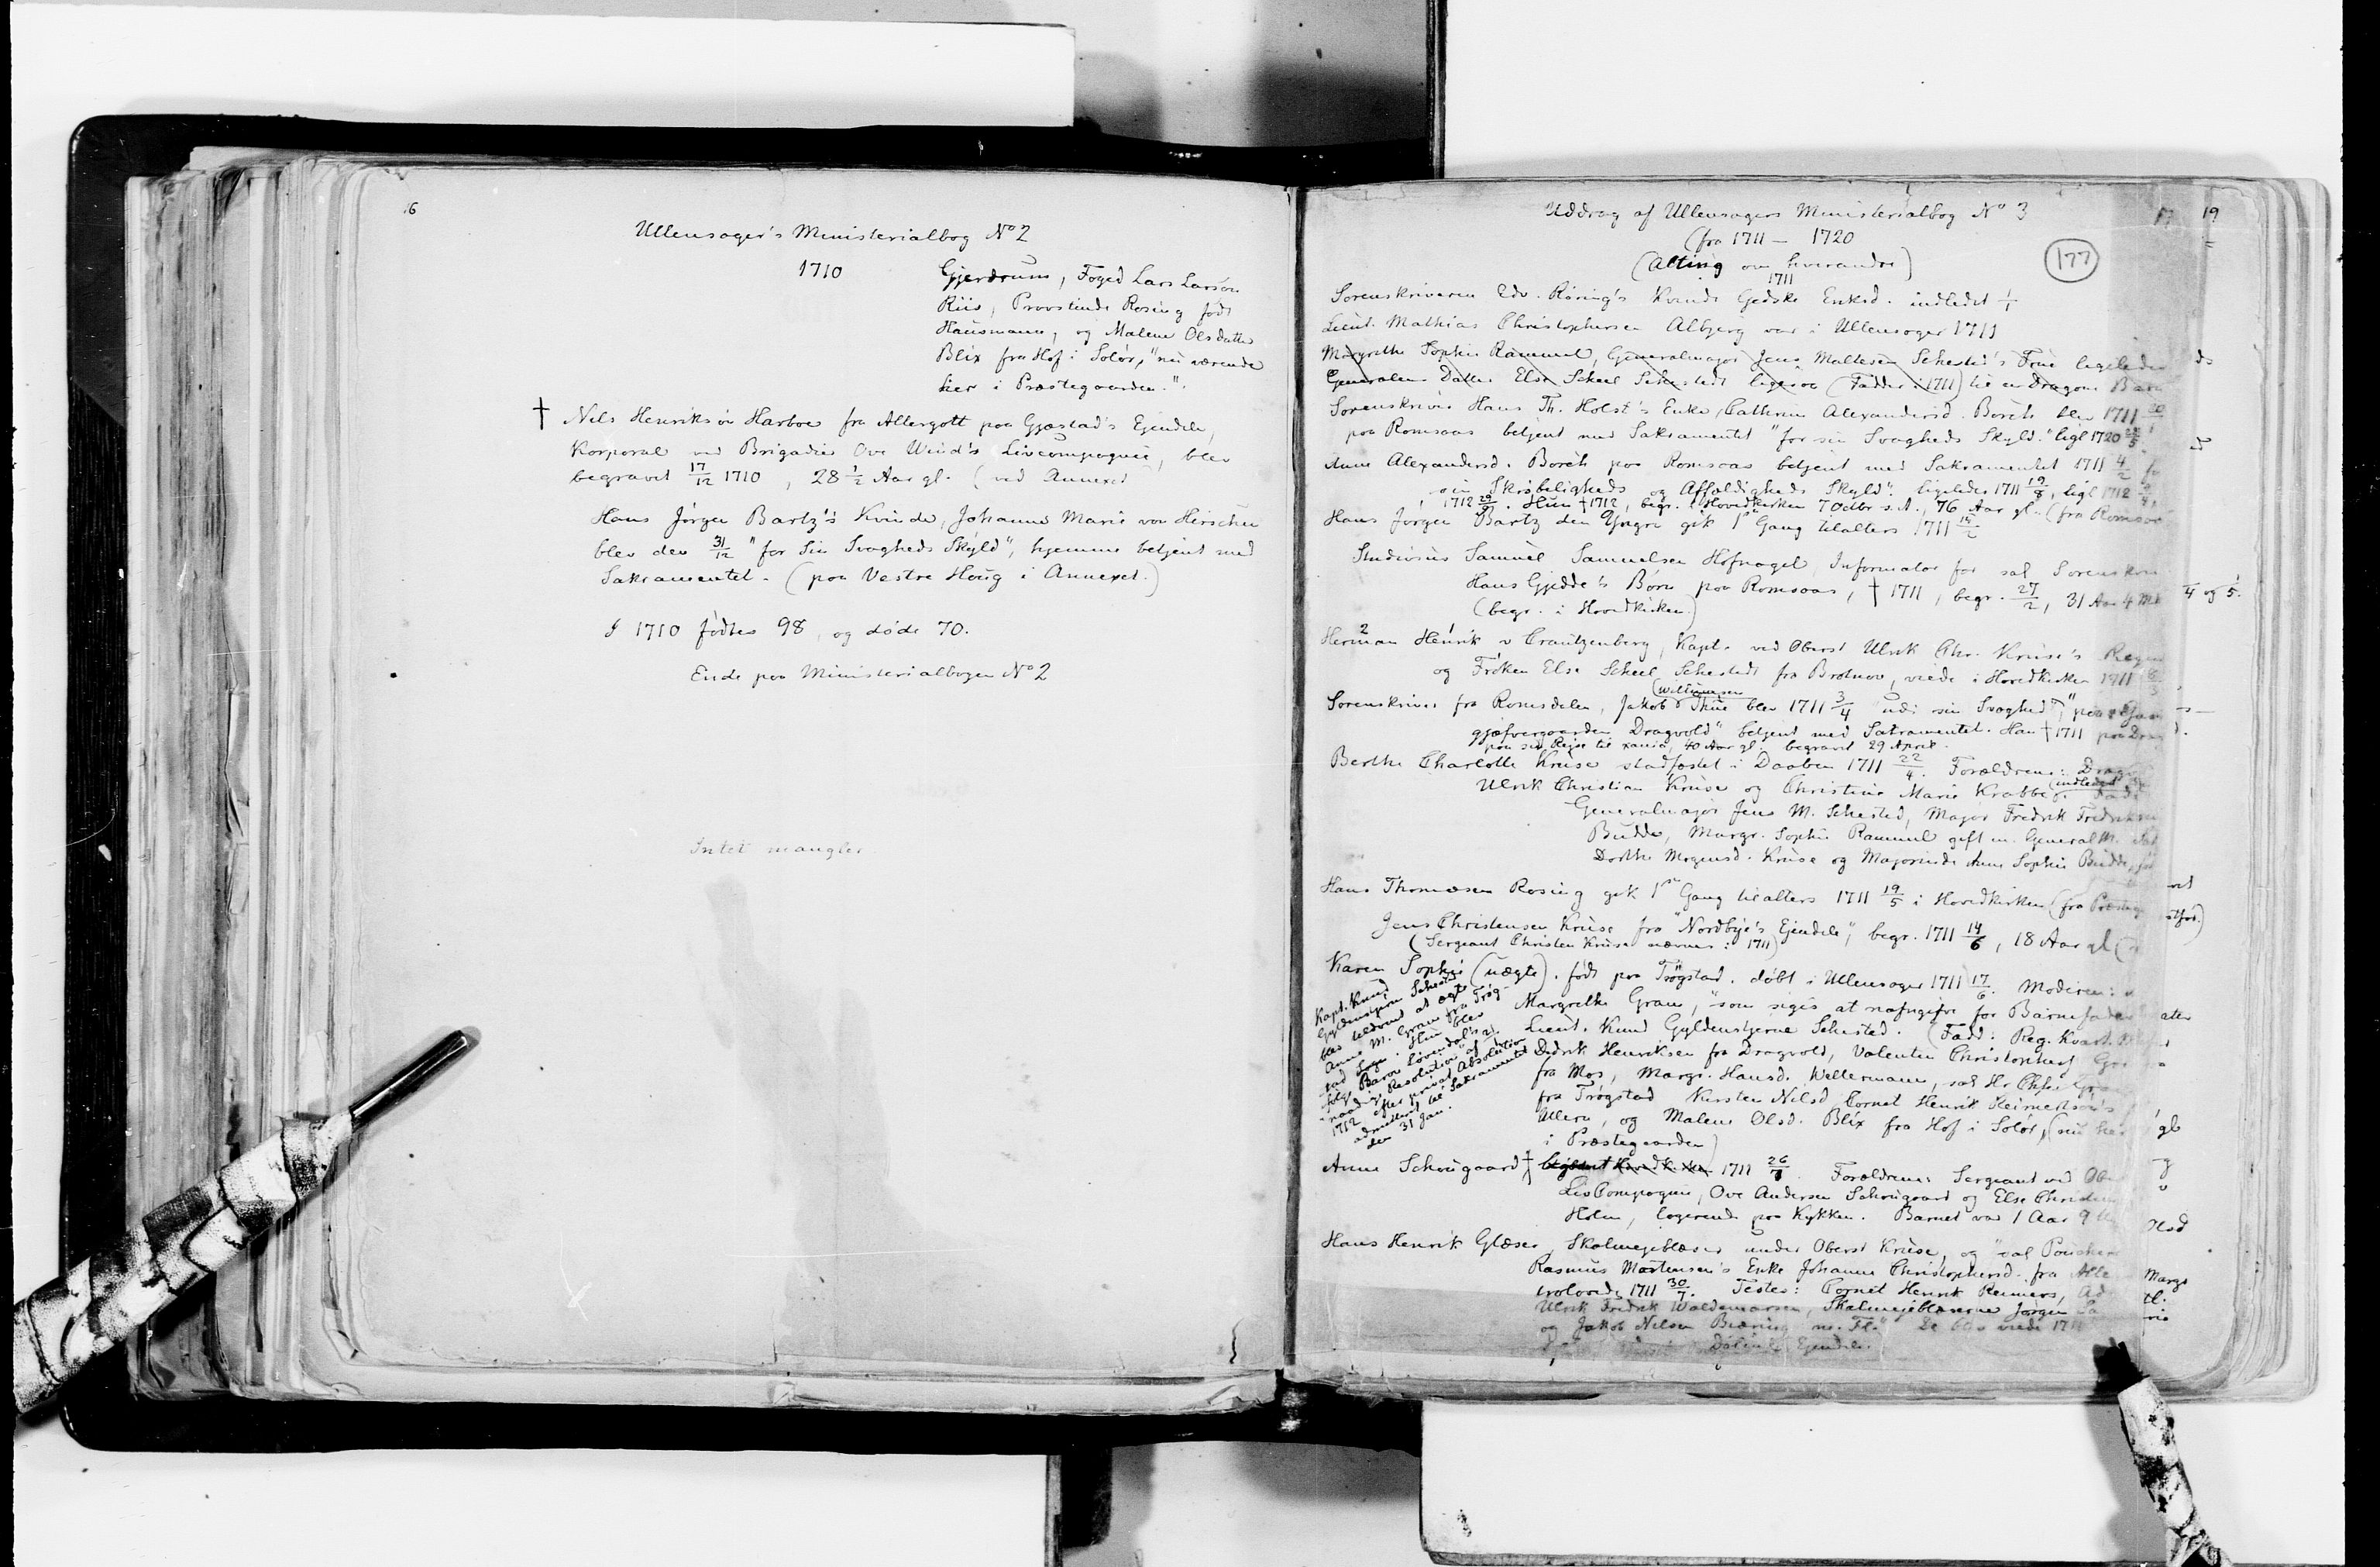 16
Ullensager's Ministerialbog No 2
1710
Gjerdrum, Foged Lars Larsøn
Riis, Provstinde Rosing født
Hausmann, og Malene Olsdatter
Blix fra Hof i Solør, "nu værende
her i Præstegaarden."
† Nels Henriksøn Harboe fra Allergott paa Gjestad's Ejendele,
Korporal ved Brigadier Ove Wind's Livcompagnie, blev
begravet 17/12 1710, 28 1/2 Aar gl. (ved Annexet
Hans Jørgen Bartz's Kvinde, Johanne Marie von Hirschen
blev den 31/12 "for Sin Svagheds Skyld", hjemme betjent med
Sakramentet. (paa Vestre Houg i Annexet.)
I 1710 fødtes 98, og døde 70.
Ende paa Ministerialbogen No 2
Intet mangler
Uddrag af Ullensagers Ministerialbog No 3
17 19
(fra 1711 — 1720
(Alting om hverandre)
177
1711
Sorenskriveren Edv. Røring's Kvinde Gedske Enksd. indledet 1/1
Lieut. Mathias Christophersen Albjerg var i Ullensager 1711
Margrethe Sophie Rammel, Generalmajor Jens Maltesen Sehested's Frue ligeledes
Generalens Datter Else Scheel Sehestedt ligesaa (Fadder i 1711) til en Dragons Barn
Sorenskriver Hans Th. Holst's Enke, Cathrine Alexandersd. Borch blev 1711 30/1
paa Romsaas betjent med Sakramentet "for sin Svagheds Skyld." ligl 1720 /5
Anne Alexandersd. Borch paa Romsaas betjent med Sakramentet 1711 4/2
sin Skrøbeligheds og Affældigheds Skyld". ligeledes 1711 19/8, ligl 1712
1712 29/ . Hun † 1712, begr. i Hovedkirken 7 Octbr s. A., 76 Aar gl. (fra Romsaas
Hans Jørgen Bartz den Yngre gik 1ste Gang tilalters 1711 15/2
Studiosus Samuel Samuelsen Hofnagel, Informator for sal. Sorenskri
Hans Gjedde's Børn paa Romsaas, † 1711, begr. 27/2, 31 Aar 4 Md 4 og 5.
(begr. i Hovedkirken.)
2 1
Herman Henrik v. Crantzenberg, Kapt. ved Oberst Ulrik Chr. Kruse's Regim
og Frøken Else Scheel Sehestedt fra Brotnov, viede i Hovedkirken 1711
(Willumsen
Sorenskriver fra Romsdalen, Jakob Thue blev 1711 3/4 "udi sin Svaghed", paa
gjæfvergaarden Dragvold" betjent med Sakramentet. Han † 1711 paa Drag
paa sin Rejse til Xania, 40 Aar gl. begravet 29 April.
Berthe Charlotte Kruse stadfæstet i Daaben 1711 22/4. Forældrene: Drag
(indledet
Ulrik Christian Kruse og Christine Marie Krabbe. Fadd
Generalmajor Jens M. Sehested, Major Fredrik Fredriksen
Budde, Margr. Sophie Rammel gift m. GeneralM.
Dorthe Mogensd. Kruse og Majorinde Anne Sophie Budde, fød
Hans Thomæsen Rosing gik 1ste Gang tilalters 1711 19/5 i Hovedkirken (fra Præsteg
Jens Christensen Kruse fra "Nordbye's Ejendele", begr. 1711 14/6, 18 Aar gl.
(Sergeant Christen Kruse nævnes i 1711)
Karen Sophie (uægte). født paa Trøgstad. døbt i Ullensager 1711 17/6. Moderen:
Margrethe Gram, "som siges at nafngifve for Barnefader
Lieut. Knud Gyldenstjerne Sehested. (Fadd: Reg. Kvart.
Didrik Henriksen fra Dragvold, Valentin Christophers
fra Mos, Margr. Hansd. Wellermann, sal Hr Chfr Gram
fra Trøgstad Kirsten Nilsd Cornet Henrik Reimertsøn's
Ullern, og Malene Olsd. Blix fra Hof i Solør, (nu her
i Præstegaarden)
Kapt. Knud
Gyldenstjern Sehested
blev tildømt at ægte
Anne M. Gram fra Trøg-
stad Sogn. Hun blev
følge Baron Løvendal's a.
naadig Resolution af
1712 efter privat Absolution
admitteret til Sakramentet
den 31 Jan.
Anne Schougaard † 1711 26/7. Forældrene: Sergeant ved Ob
LivCompagnie, Ove Andersen Schougaard og Else Christen
Holm, logerende paa Kykken. Barnet var 1 Aar 9
Hans Henrik Glæser, Skalmejeblæser under Oberst Kruse, og "sal Pouker
Rasmus Mortensen's Enke Johanne Christophersd. fra Alle
trolovede 1711 30/7. Testes: Cornet Henrik Reimers,
Ulrik Fredrik Waldemarsen, Skalmejeblæserne Jørgen
og Jakob Nilsen Biering m. Fl." De blev viede 1711
Ejendele.